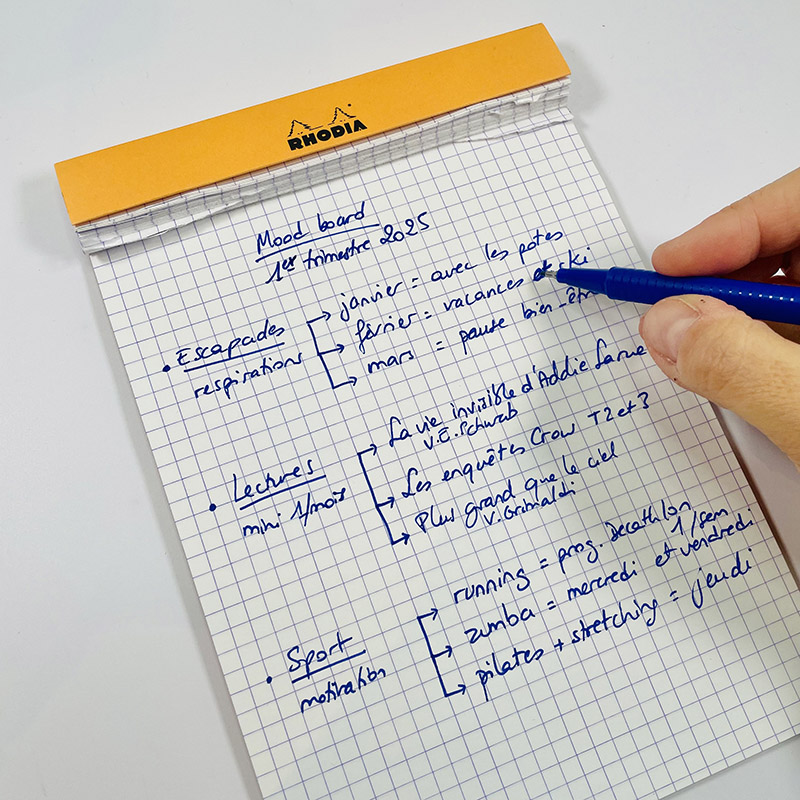 RHODIA
Mood board
1er trimestre 2025
• Escapades
respirations
→ janvier = avec les potes
→ février = vacances et ski
→ mars = pause bien-être
• Lectures
mini 1/mois
→ La vie invisible d'Addie Larue
V.E. Schwab
→ Les enquêtes Crow T2 et 3
→ Plus grand que le ciel
V. Grimaldi
• Sport
motivation
→ running = prog. Decathlon
1/sem
→ zumba = mercredi et vendredi
→ pilates + stretching = jeudi